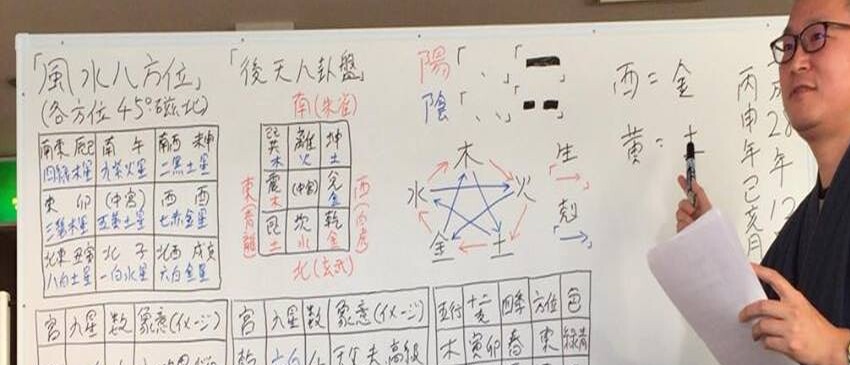 「風水八方位」
(各方位45°磁北)
南東 辰巳 南 午 南西 未申
四緑木星 九紫火星 二黒土星
東 卯 (中宮) 西 酉
三碧木星 五黄土星 七赤金星
北東 丑寅 北 子 北西 戌亥
八白土星 一白水星 六白金星
「後天八卦盤」
南(朱雀)
巽 離 坤
木 火 土
東(青龍)
震 (中宮) 兌
木 金
西(白虎)
艮 坎 乾
土 水 金
北(玄武)
陽「、」「
陰「、、」「
木
水 火
金 土
生
「→」
「→」
西=金
黄=土
丙申年己亥月
宮 九星 数 象意(イメージ)
宮 九星 数 象意(イメージ)
乾 六白
五行 十二支 四季 方位 色
木 寅卯 春 東 緑青